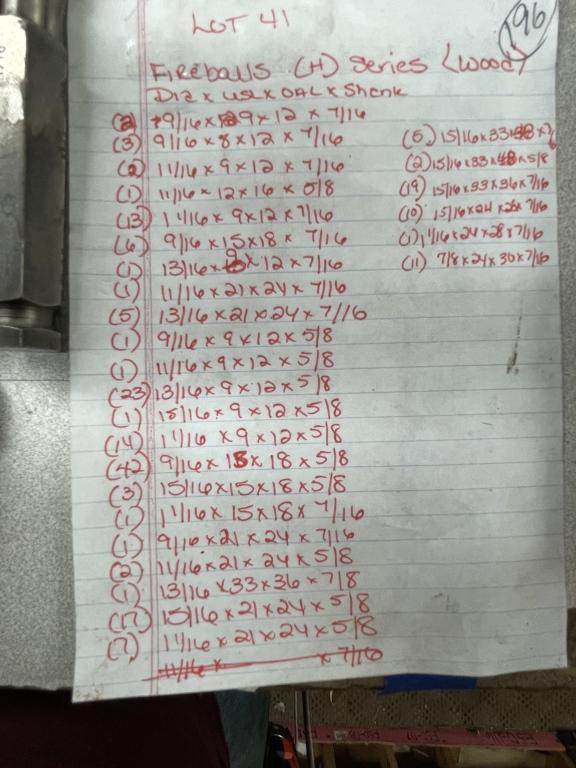 LOT 41
196
FireballS (H) Series (Wood)
Dia x USL x OAL x Shank
(2) 9/16 x 9 x 12 x 7/16
(3) 9/16 x 8 x 12 x 7/16
(2) 11/16 x 9 x 12 x 7/16
(1) 11/16 x 12 x 16 x 5/8
(13) 1 1/16 x 9 x 12 x 7/16
(6) 9/16 x 15 x 18 x 7/16
(1) 13/16 x 9 x 12 x 7/16
(1) 11/16 x 21 x 24 x 7/16
(5) 13/16 x 21 x 24 x 7/16
(1) 9/16 x 9 x 12 x 5/8
(1) 11/16 x 9 x 12 x 5/8
(23) 13/16 x 9 x 12 x 5/8
(1) 15/16 x 9 x 12 x 5/8
(14) 1 1/16 x 9 x 12 x 5/8
(42) 9/16 x 15 x 18 x 5/8
(3) 15/16 x 15 x 18 x 5/8
(1) 1 1/16 x 15 x 18 x 7/16
(1) 9/16 x 21 x 24 x 7/16
(2) 11/16 x 21 x 24 x 5/8
(1) 13/16 x 33 x 36 x 7/8
(7) 15/16 x 21 x 24 x 5/8
(7) 1 1/16 x 21 x 24 x 5/8
11/16 x x 7/16
(5) 15/16 x 33 x
(2) 15/16 x 33 x 48 x 5/8
(19) 15/16 x 33 x 36 x 7/16
(10) 15/16 x 24 x 28 x 7/16
(1) 1 1/16 x 24 x 28 x 7/16
(11) 7/8 x 24 x 30 x 7/16